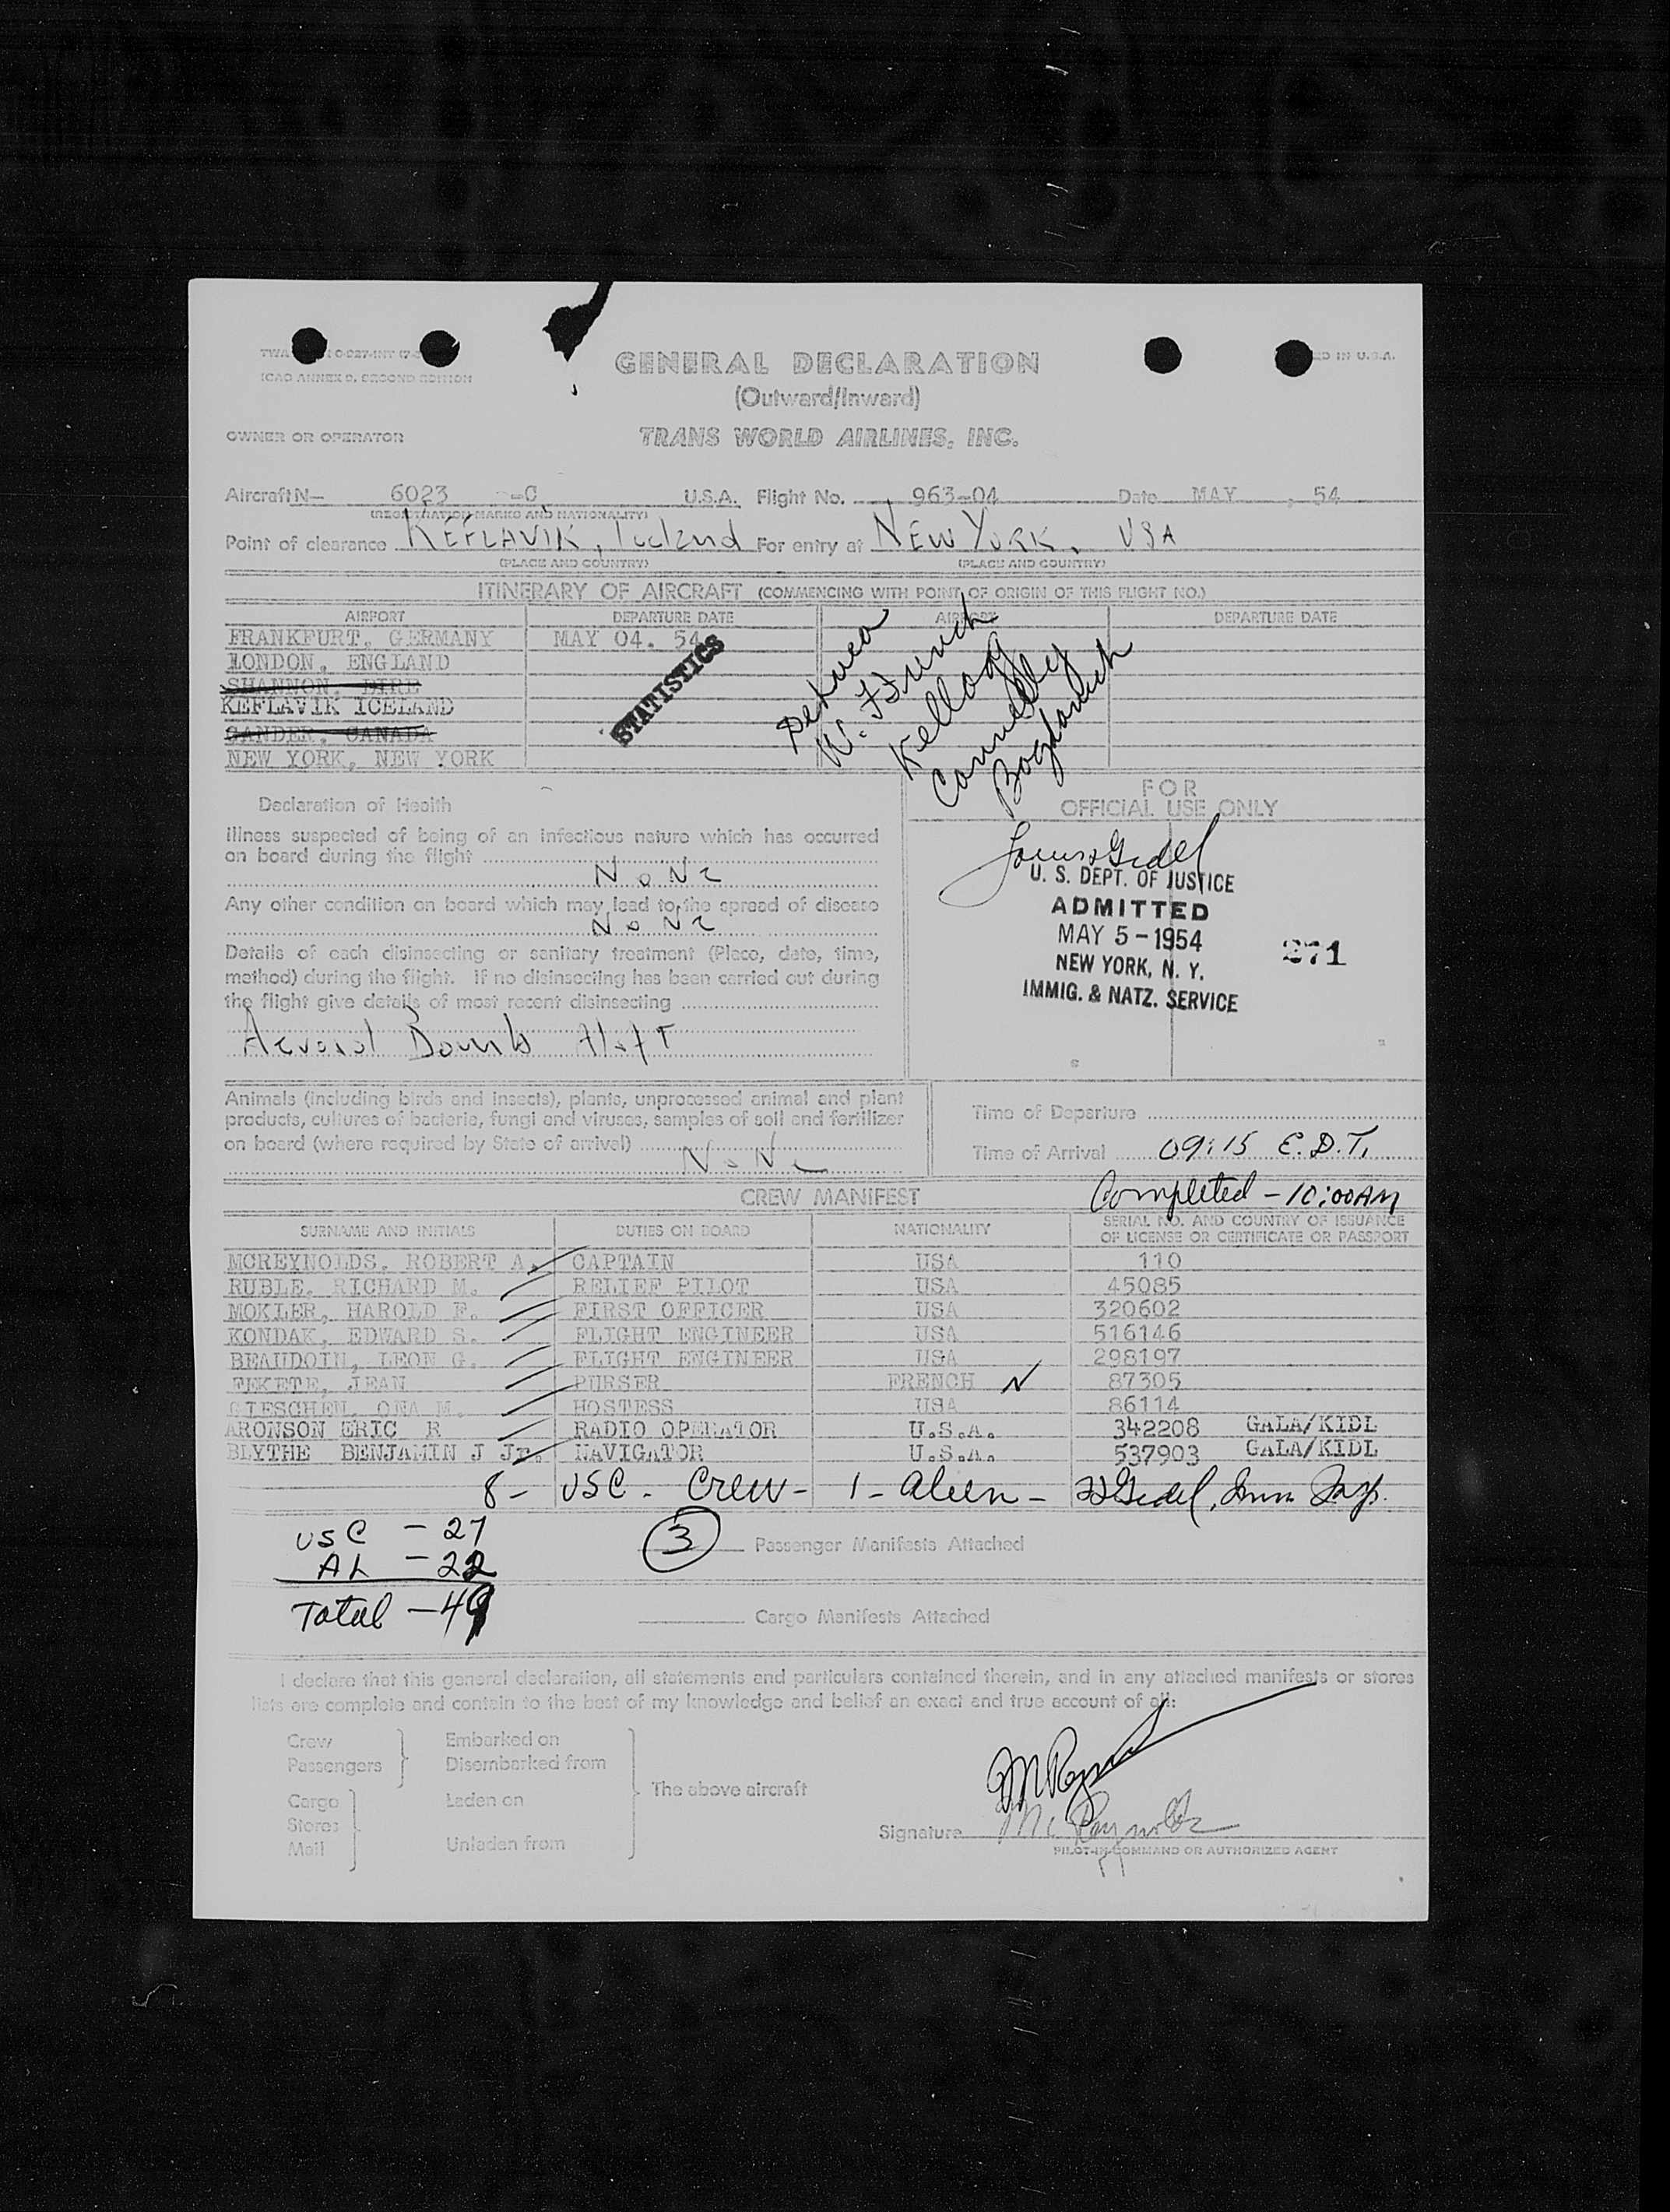 GENERAL DECLARATION
ICAO ANNEX 9, SECOND EDITION
(Outward/Inward)
OWNER OR OPERATOR TRANS WORLD AIRLINES, INC.
Aircraft N— 6023 -C U.S.A. Flight No. 963-04 Date MAY , 54
(REGISTRATION MARKS AND NATIONALITY)
Point of clearance KEFLAVIK, Iceland For entry at NEW YORK, USA
(PLACE AND COUNTRY) (PLACE AND COUNTRY)
ITINERARY OF AIRCRAFT (COMMENCING WITH POINT OF ORIGIN OF THIS FLIGHT NO.)
AIRPORT DEPARTURE DATE AIRPORT DEPARTURE DATE
FRANKFURT, GERMANY MAY 04. 54
LONDON, ENGLAND
SHANNON, EIRE
KEFLAVIK ICELAND
GANDER, CANADA
NEW YORK, NEW YORK
STATISTICS
Kellogg
Declaration of Health
Illness suspected of being of an infectious nature which has occurred
on board during the flight
NoNe
Any other condition on board which may lead to the spread of disease
NoNe
Details of each disinsecting or sanitary treatment (Place, date, time,
method) during the flight. If no disinsecting has been carried out during
the flight give details of most recent disinsecting
Aerosol Bomb
FOR
OFFICIAL USE ONLY
U. S. DEPT. OF JUSTICE
ADMITTED
MAY 5 - 1954
NEW YORK, N. Y.
IMMIG. & NATZ. SERVICE
271
Animals (including birds and insects), plants, unprocessed animal and plant
products, cultures of bacteria, fungi and viruses, samples of soil and fertilizer
on board (where required by State of arrival)
NoNe
Time of Departure
Time of Arrival 09:15 E.D.T.
Completed - 10:00AM
CREW MANIFEST
SURNAME AND INITIALS DUTIES ON BOARD NATIONALITY SERIAL NO. AND COUNTRY OF ISSUANCE OF LICENSE OR CERTIFICATE OR PASSPORT
MCREYNOLDS, ROBERT A. CAPTAIN USA 110
RUBLE, RICHARD M. RELIEF PILOT USA 45085
MOKLER, HAROLD F. FIRST OFFICER USA 320602
KONDAK, EDWARD S. FLIGHT ENGINEER USA 516146
BEAUDOIN, LEON G. FLIGHT ENGINEER USA 298197
FEKETE, JEAN PURSER FRENCH 87305
GIESCHEN, ONA M. HOSTESS USA 86114
ARONSON ERIC R RADIO OPERATOR U.S.A. 342208 GALA/KIDL
BLYTHE BENJAMIN J Jr. NAVIGATOR U.S.A. 537903 GALA/KIDL
8 - USC - Crew - 1 - alien -
USC - 27
AL - 22
Total - 49
3 Passenger Manifests Attached
Cargo Manifests Attached
I declare that this general declaration, all statements and particulars contained therein, and in any attached manifests or stores
lists are complete and contain to the best of my knowledge and belief an exact and true account of all:
Crew Embarked on
Passengers Disembarked from
The above aircraft
Cargo Laden on
Stores
Mail Unladen from
Signature McReynolds
PILOT-IN-COMMAND OR AUTHORIZED AGENT